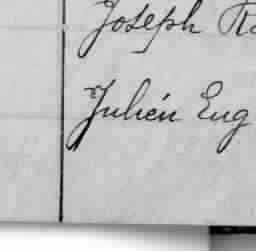 Joseph
Julién Eug